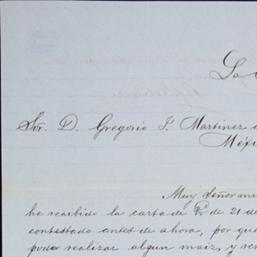 La
Sr. D. Gregorio S. Martinez
Méxi
Muy Señor m
he recibido la carta de V. de 21 de
contestado antes de ahora, por que
poder realizar algun maiz, y ven